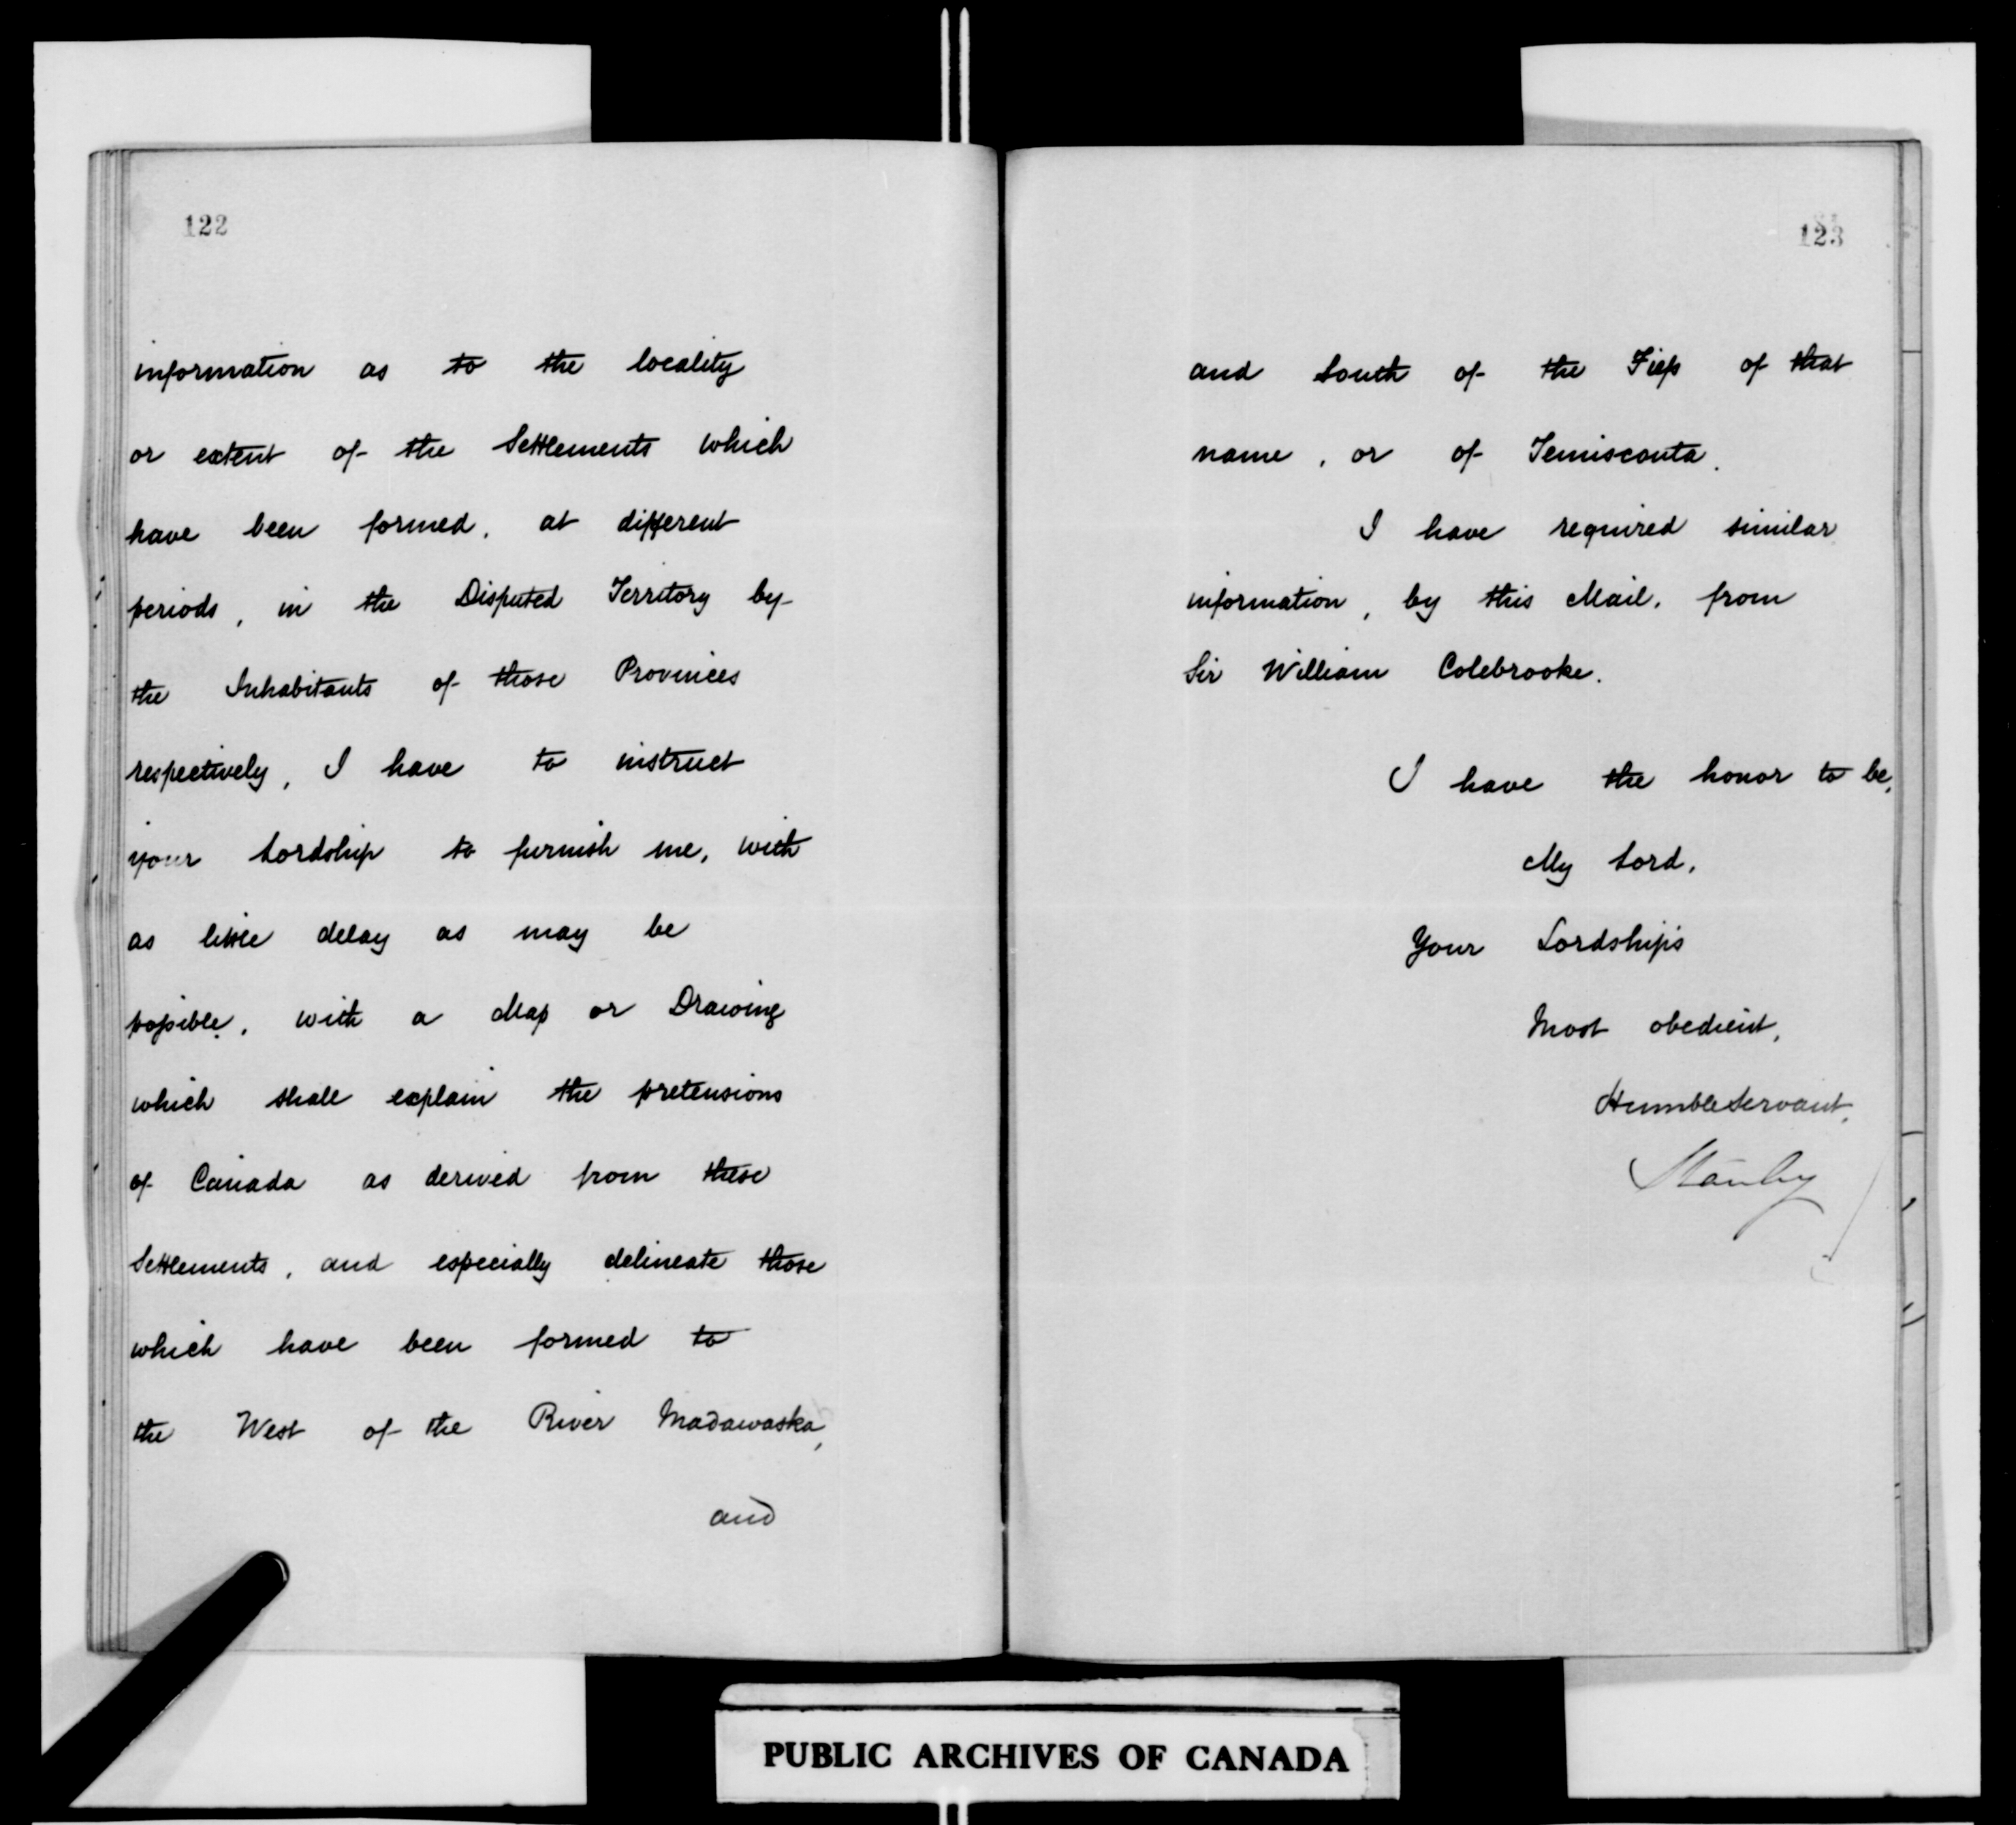 122
information as to the locality
or extent of the Settlements which
have been formed, at different
periods, in the Disputed Territory by
the Inhabitants of those Provinces
respectively, I have to instruct
your Lordship to furnish me, with
as little delay as may be
possible, with a Map or Drawing
which shall explain the pretensions
of Canada as derived from these
Settlements, and especially delineate those
which have been formed to
the West of the River Madawaska,
and
123
and South of the Fiefs of that
name, or of Temisconta.
I have required similar
information, by this Mail, from
Sir William Colebrooke.
I have the honor to be,
My Lord,
Your Lordships
Most obedient,
Humble Servant,
Stanley
PUBLIC ARCHIVES OF CANADA